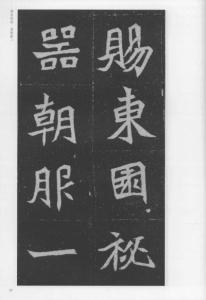 賜東園祕
器朝服一